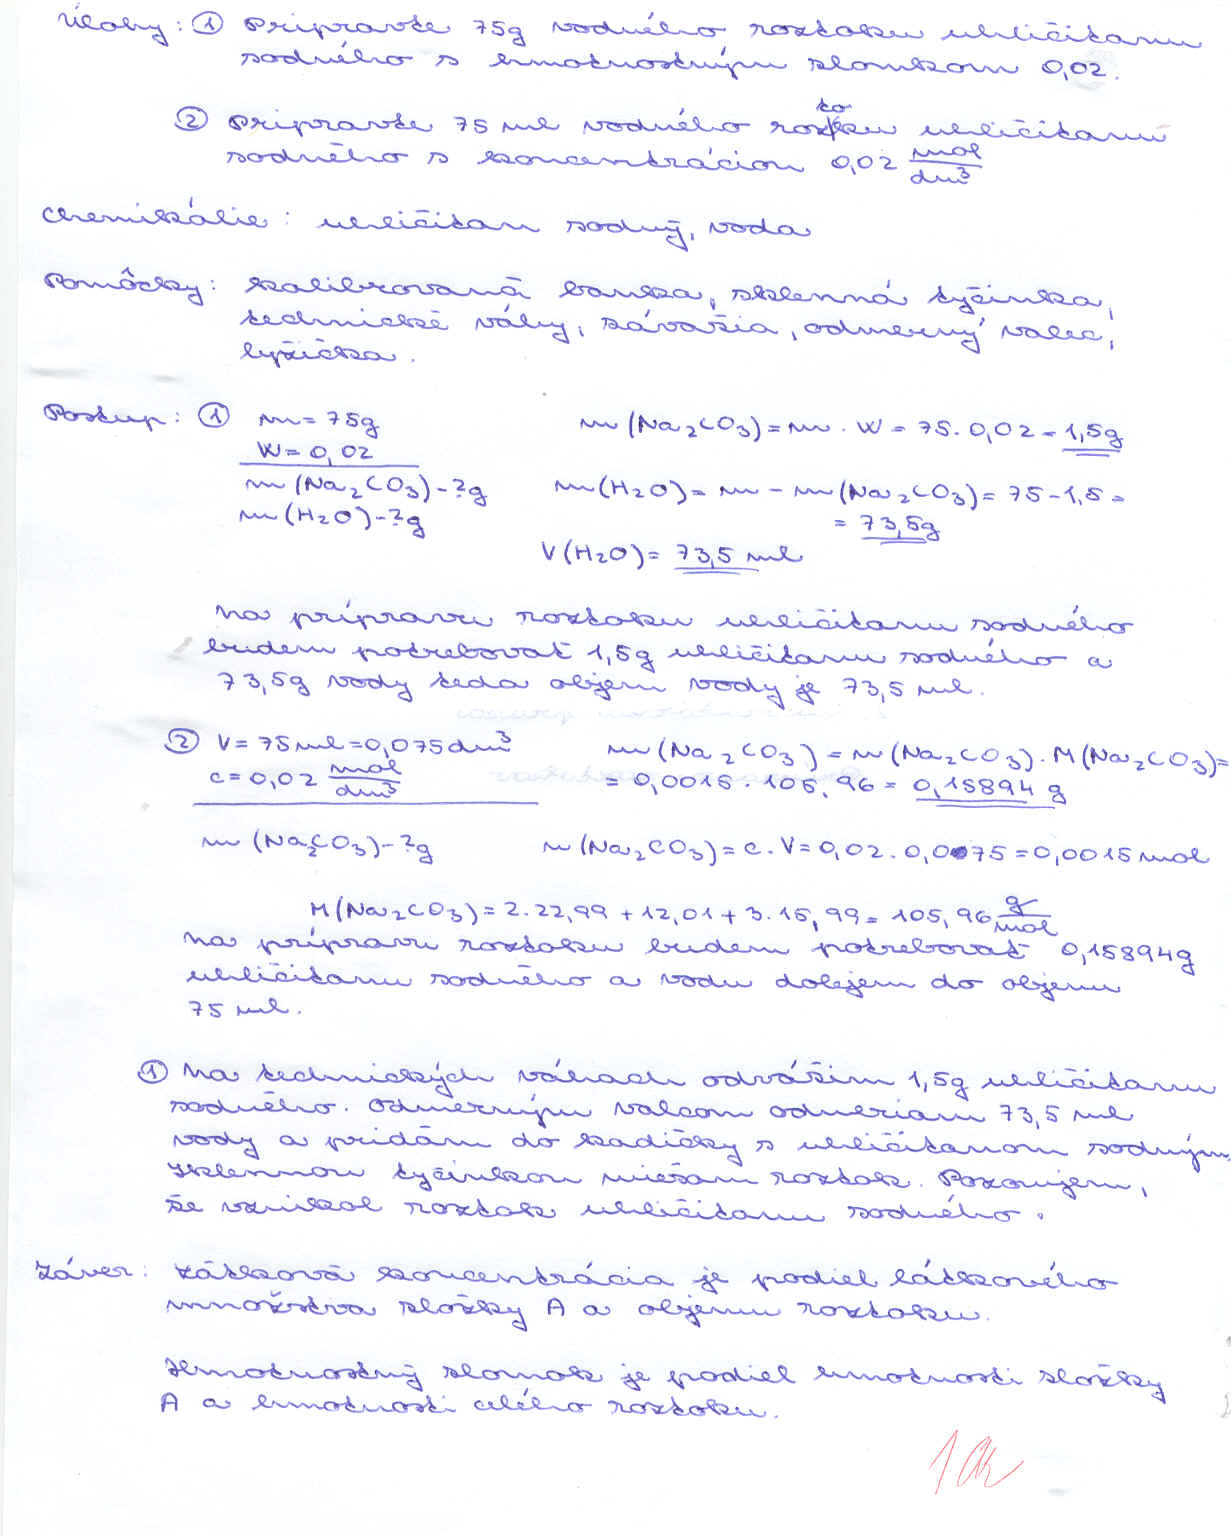 Úlohy: ① Pripravte 75g vodného roztoku uhličitanu
sodného s hmotnostným zlomkom 0,02.
② Pripravte 75 ml vodného roztoku uhličitanu
sodného s koncentráciou 0,02 mol/dm³
Chemikálie: uhličitan sodný, voda
Pomôcky: kalibrovaná banka, sklenná tyčinka,
technické váhy, závažia, odmerný valec,
lyžička.
Postup: ① m = 75g m(Na₂CO₃) = m . W = 75. 0,02 = 1,5g
W = 0,02
m(Na₂CO₃) - ?g m(H₂O) = m - m(Na₂CO₃) = 75 - 1,5 =
m(H₂O) - ?g = 73,5g
V(H₂O) = 73,5 ml
Na prípravu roztoku uhličitanu sodného
budem potrebovať 1,5g uhličitanu sodného a
73,5g vody teda objem vody je 73,5 ml.
② V = 75 ml = 0,075 dm³ m(Na₂CO₃) = n(Na₂CO₃). M(Na₂CO₃) =
c = 0,02 mol/dm³ = 0,0015. 105,96 = 0,15894 g
m(Na₂CO₃) - ?g n(Na₂CO₃) = c. V = 0,02. 0,075 = 0,0015 mol
M(Na₂CO₃) = 2. 22,99 + 12,01 + 3. 15,99 = 105,96 g/mol
Na prípravu roztoku budem potrebovať 0,15894g
uhličitanu sodného a vodu dolejem do objemu
75 ml.
① Na technických váhach odvážim 1,5g uhličitanu
sodného. Odmerným valcom odmeriam 73,5 ml
vody a pridám do kadičky s uhličitanom sodným.
Sklennou tyčinkou miešam roztok. Pozorujem,
že vznikol roztok uhličitanu sodného.
Záver: Látková koncentrácia je podiel látkového
množstva zložky A a objemu roztoku.
Hmotnostný zlomok je podiel hmotnosti zložky
A a hmotnosti celého roztoku.